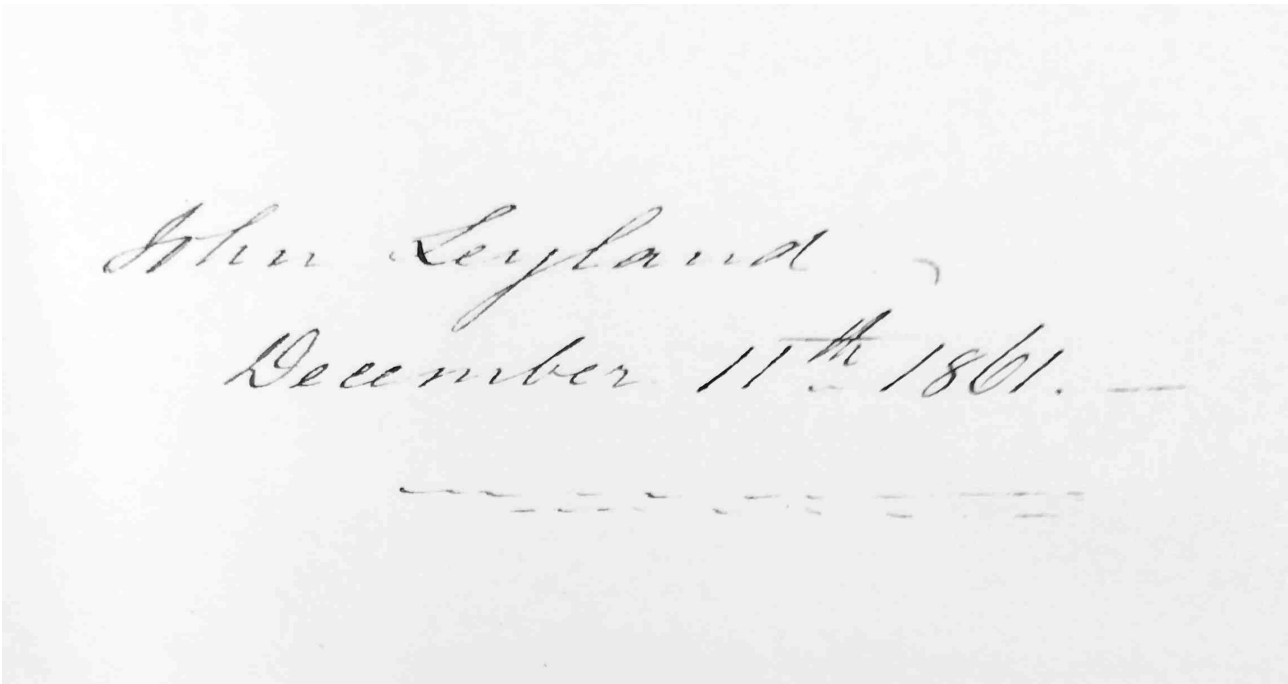 John Leyland
December 11th 1861. —